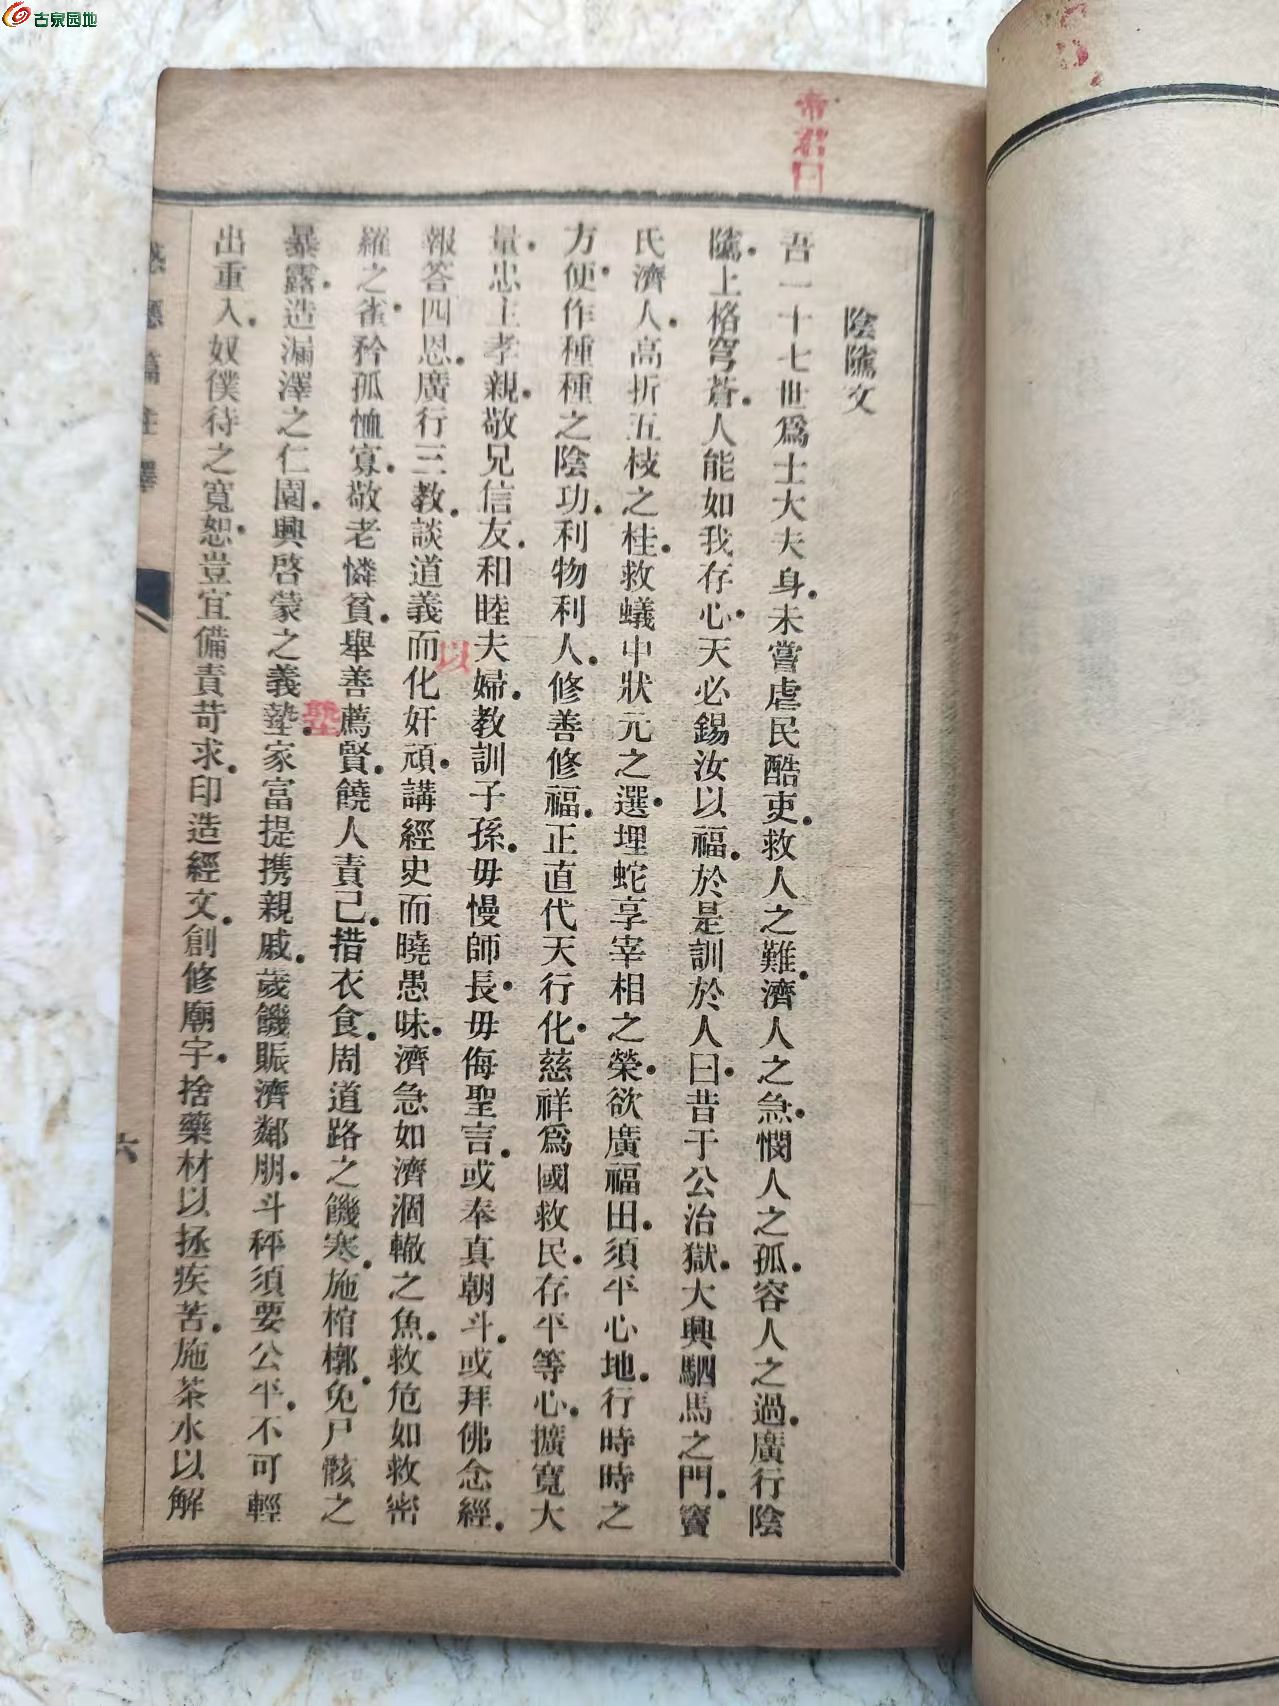 古泉园地
帝君曰
陰隲文
吾一十七世爲士大夫身未嘗虐民酷吏救人之難濟人之急憫人之孤容人之過廣行陰
隲上格穹蒼人能如我存心天必錫汝以福於是訓於人曰昔于公治獄大興駟馬之門竇
氏濟人高折五枝之桂救蟻中狀元之選埋蛇享宰相之榮欲廣福田須平心地行時時之
方便作種種之陰功利物利人修善修福正直代天行化慈祥爲國救民存平等心擴寬大
量忠主孝親敬兄信友和睦夫婦教訓子孫毋慢師長毋侮聖言或奉真朝斗或拜佛念經
報答四恩廣行三教談道義而化奸頑講經史而曉愚昧濟急如濟涸轍之魚救危如救密
以
羅之雀矜孤恤寡敬老憐貧舉善薦賢饒人責己措衣食周道路之饑寒施棺槨免尸骸之
塾
暴露造漏澤之仁園興啓蒙之義塾家富提携親戚歲饑賑濟鄰朋斗秤須要公平不可輕
出重入奴僕待之寬恕豈宜備責苛求印造經文創修廟宇捨藥材以拯疾苦施茶水以解
感應篇註釋
六